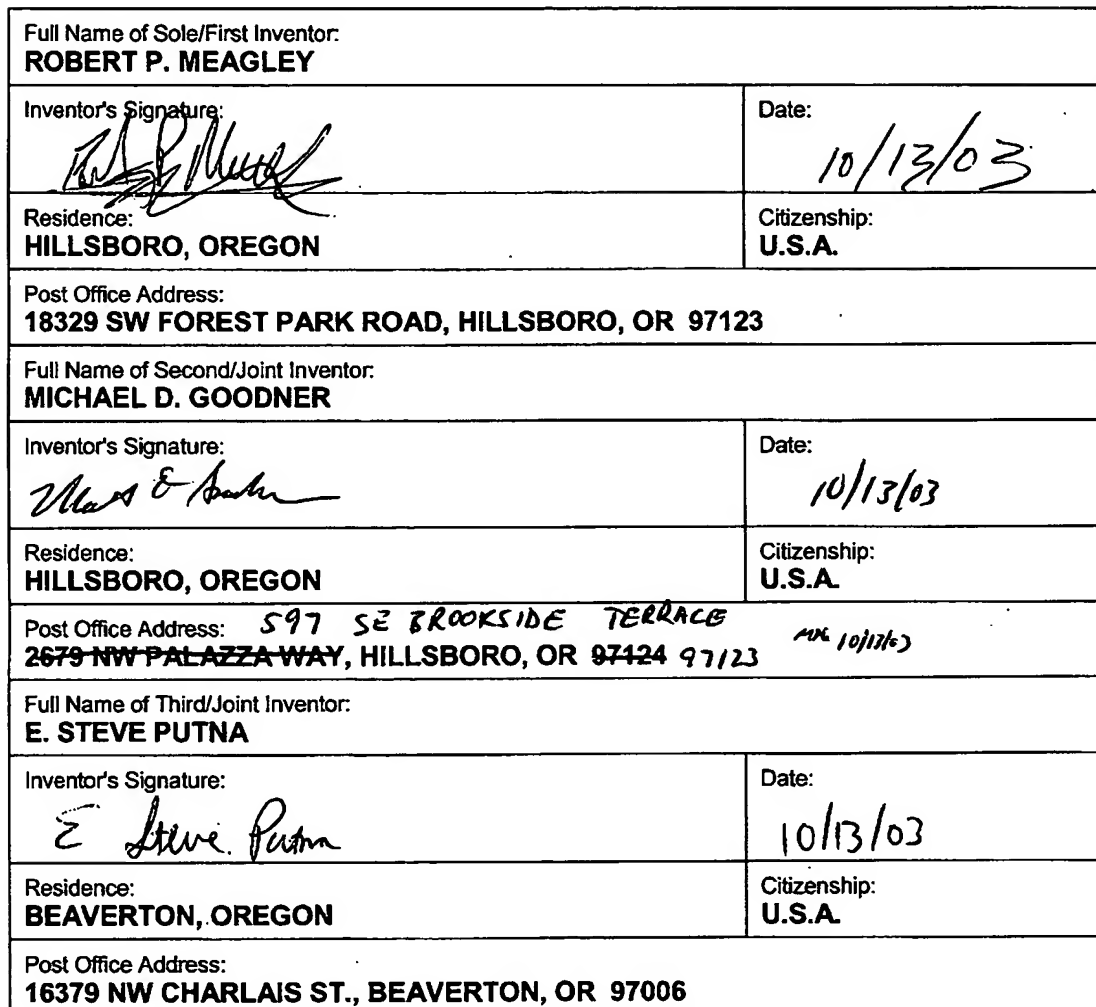 Full Name of Sole/First Inventor:
ROBERT P. MEAGLEY
Inventor's Signature:
Date:
10/13/03
Residence:
HILLSBORO, OREGON
Citizenship:
U.S.A.
Post Office Address:
18329 SW FOREST PARK ROAD, HILLSBORO, OR 97123
Full Name of Second/Joint Inventor:
MICHAEL D. GOODNER
Inventor's Signature:
Date:
10/13/03
Residence:
HILLSBORO, OREGON
Citizenship:
U.S.A.
Post Office Address: 597 SE BROOKSIDE TERRACE
2679 NW PALAZZA WAY, HILLSBORO, OR 97124 97123 10/13/03
Full Name of Third/Joint Inventor:
E. STEVE PUTNA
Inventor's Signature:
E Steve Putna
Date:
10/13/03
Residence:
BEAVERTON, OREGON
Citizenship:
U.S.A.
Post Office Address:
16379 NW CHARLAIS ST., BEAVERTON, OR 97006